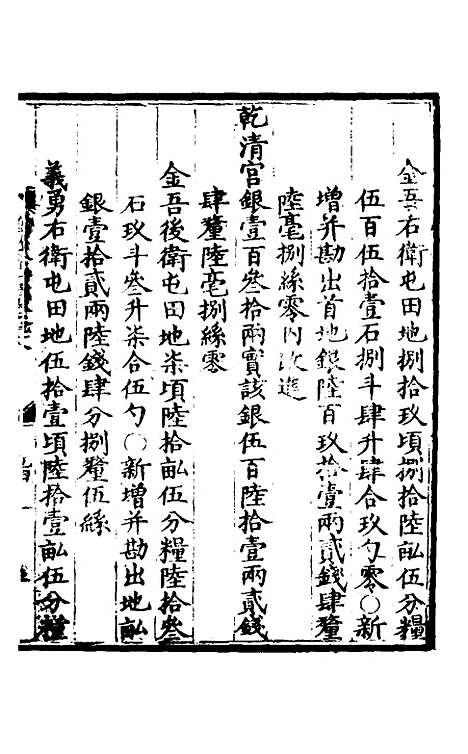 金吾右衛屯田地捌拾玖頃捌拾陸畝伍分糧
伍百伍拾壹石捌斗肆升肆合玖勺零○新
增并勘出首地銀陸百玖拾壹兩貳錢肆釐
陸毫捌絲零內改進
乾清宮銀壹百叄拾兩實該銀伍百陸拾壹兩貳錢
肆釐陸毫捌絲零
金吾後衛屯田地柒頃陸拾畝伍分糧陸拾叄
石玖斗叄升柒合伍勺○新增并勘出地畝
銀壹拾貳兩陸錢肆分捌釐伍絲
義勇右衛屯田地伍拾壹頃陸拾壹畝伍分糧